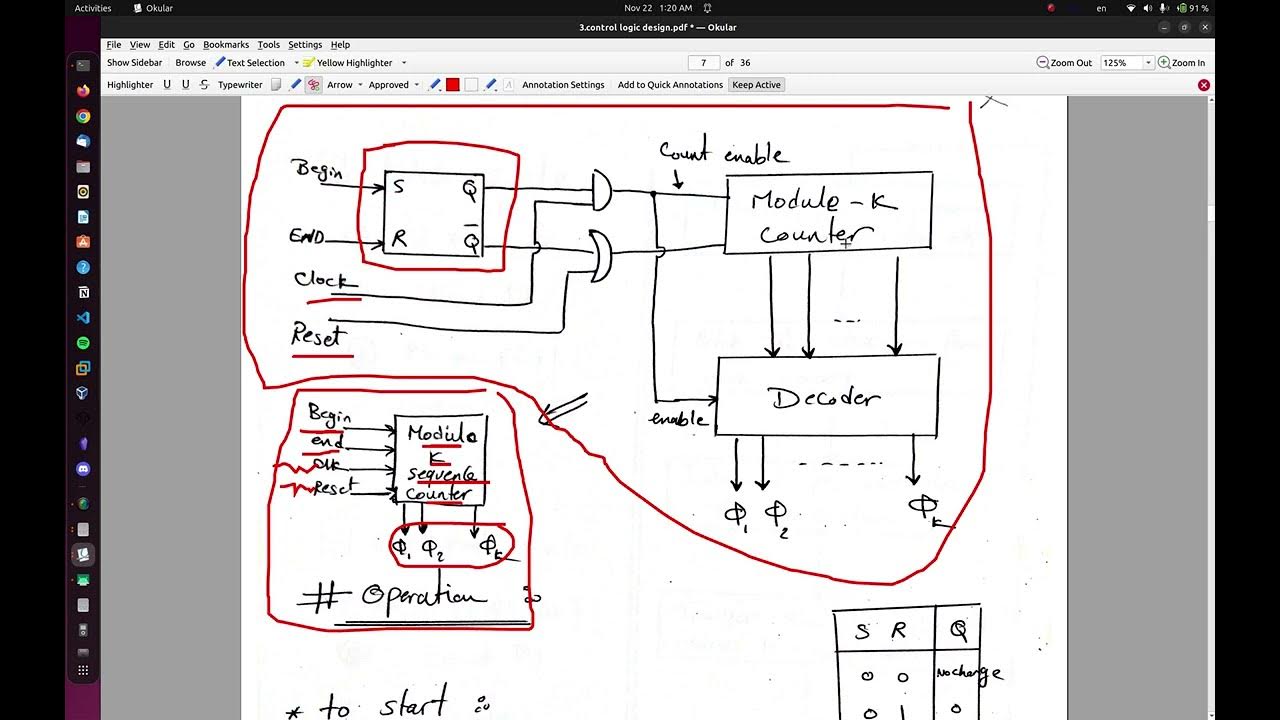 Activities
Okular
Nov 22 1:20 AM
en
91 %
3.control logic design.pdf * — Okular
File View Edit Go Bookmarks Tools Settings Help
Show Sidebar Browse Text Selection Yellow Highlighter
7 of 36
Zoom Out 125% Zoom In
Highlighter U U S Typewriter Arrow Approved A Annotation Settings Add to Quick Annotations Keep Active
Count enable
Begin
S Q
END
R Q̅
Clock
Reset
Module - K
counter
---
Decoder
enable
- - - - - -
Φ1 Φ2 Φk
Begin
end
Clk
Reset
Module
K
sequence
counter
Φ1 Φ2 Φk
# Operation :
S R Q
0 0 No change
0 1 0
* to start :